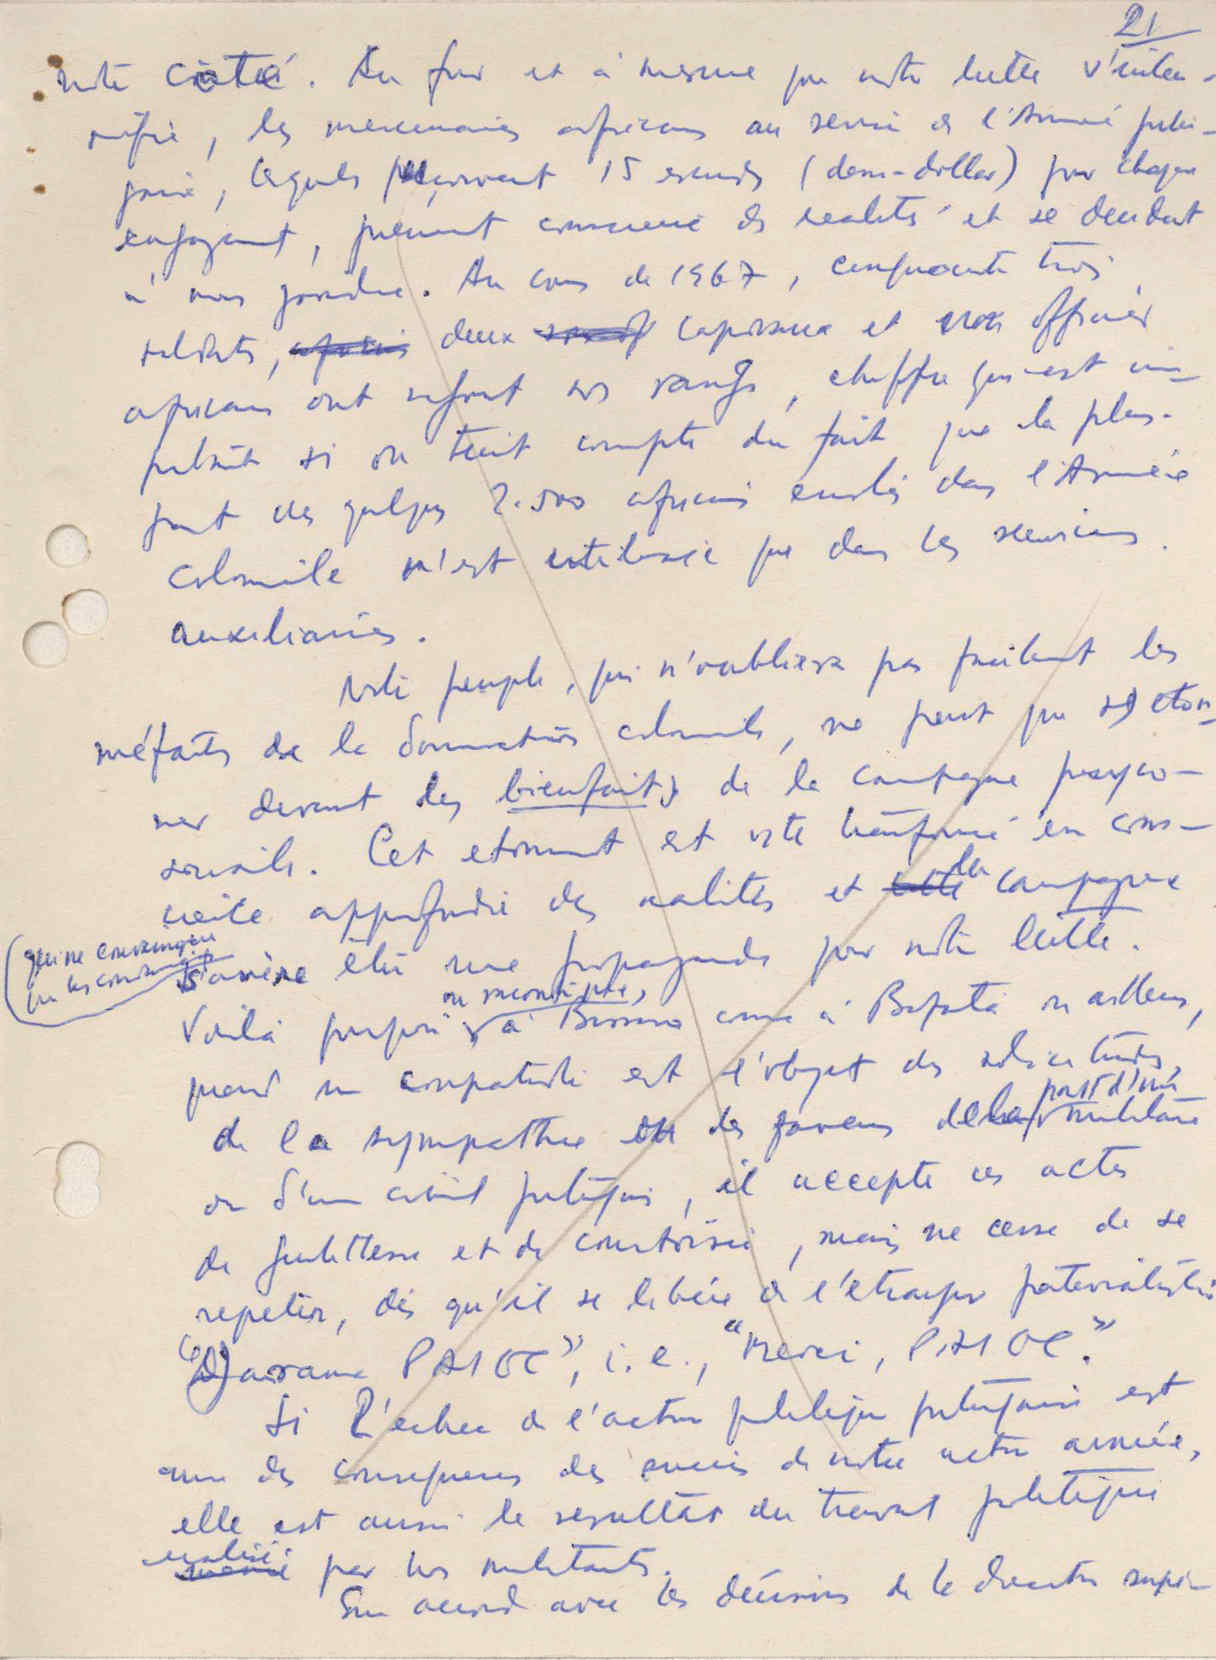 21
notre côté. Au fur et à mesure que notre lutte s'inten-
sifie, les mercenaires africains au service de l'Armée portu-
gaise, lesquels perçoivent 15 escudos (demi-dollar) par chaque
engagement, prennent conscience des realités et se decident
à nous joindre. Au cours de 1967, cinquante trois
soldats, deux caporaux et officier
africains ont rejoint nos rangs, chiffre qui est im-
portant si on tient compte du fait que la plu-
part des quelques 2.500 africains enrolés dans l'Armée
coloniale n'est utilisée que dans les services
auxiliaires.
Notre peuple, qui n'oubliera pas facilement les
méfaits de la domination coloniale, ne peut que s'eton-
ner devant les bienfaits de la campagne psycho-
sociale. Cet etonnement est vite transformé en cons-
cience approfondie des realités et la campagne
qui ne convainque
s'avère être une propagande pour notre lutte.
Voilà pourquoi à Bissau comme à Bafata ou ailleurs,
quand un compatriote est l'objet des sollicitudes,
de la sympathie ou des faveurs de la part d'un militaire
ou d'un civil portugais, il accepte ces actes
de gentillesse et de courtoisie, mais ne cesse de se
repeter, dès qu'il se libère de l'etranger paternaliste:
"Djarama PAIGC", i.e., "Merci, PAIGC."
Si l'echec de l'action politique portugaise est
une des consequences des succès de notre action armée,
elle est aussi le resultat du travail politique
realisé par nos militants.
En accord avec les décisions de la direction supé-